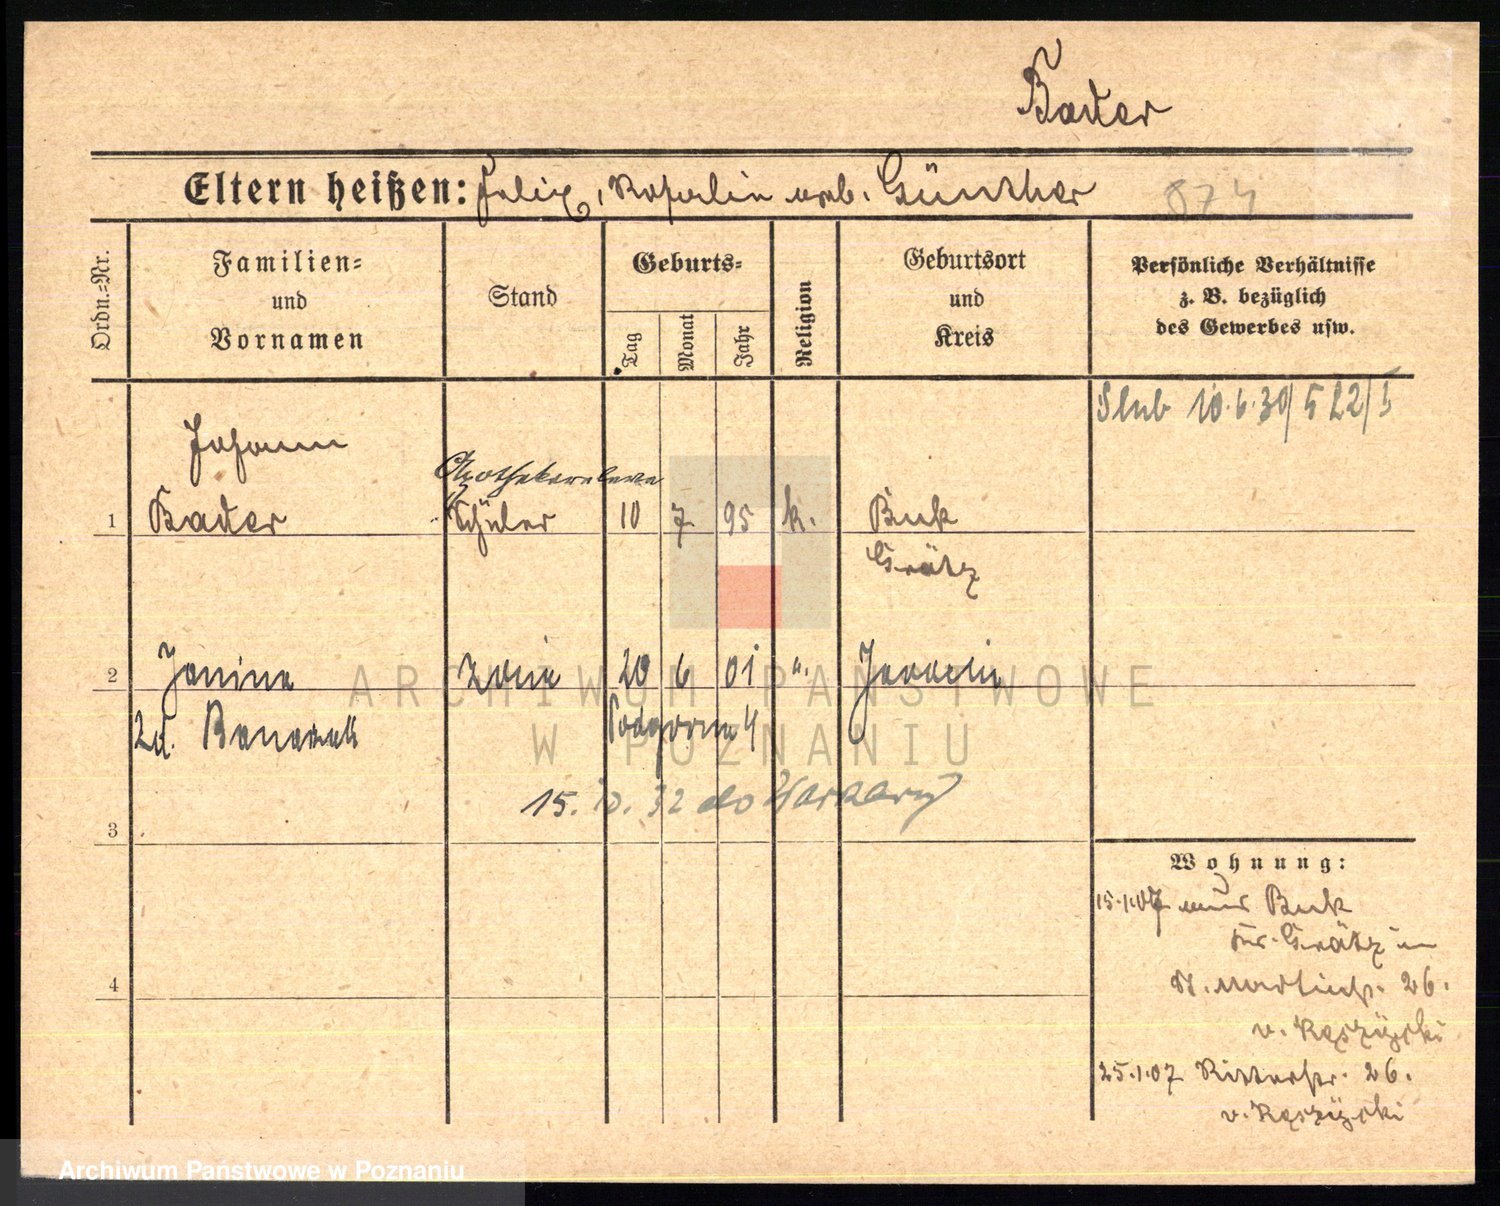 Bader
Eltern heißen: Felix, Rosalie geb. Günther
874
Ordn.=Nr.
Familien=
und
Vornamen
Stand
Geburts=
Tag
Monat
Jahr
Religion
Geburtsort
und
Kreis
Persönliche Verhältnisse
z. B. bezüglich
des Gewerbes usw.
Slub 10.6.30/522/I
Johann
Apothekereleve
1 Bader Schüler 10 7. 95 k. Buk
Grätz
2 Janina żona 20 6 01 ". Jarocin
zd. Banaszak Podgorna 4
15. 10. 32 do
3
4
Wohnung:
15.1.07 aus Buk
Kr. Grätz in
St. Martinstr. 26.
v.
25.1.07 Ritterstr. 26.
v.
ARCHIWUM PAŃSTWOWE
W POZNANIU
Archiwum Państwowe w Poznaniu